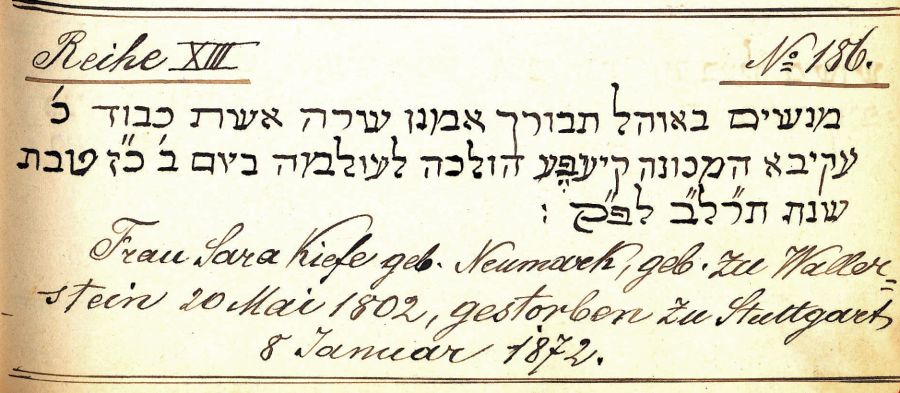 Reihe XIII
No 186.
מנשים באוהל תבורך אמנו שרה אשת כבוד כ׳
עקיבא המכונה קיעפע הולכה לעולמה ביום ב׳ כ״ז טובת
שנת תרל״ב לפ״ק :
Frau Sara Kiefe geb. Neumark, geb. zu Waller=
stein 20 Mai 1802, gestorben zu Stuttgart
8 Januar 1872.